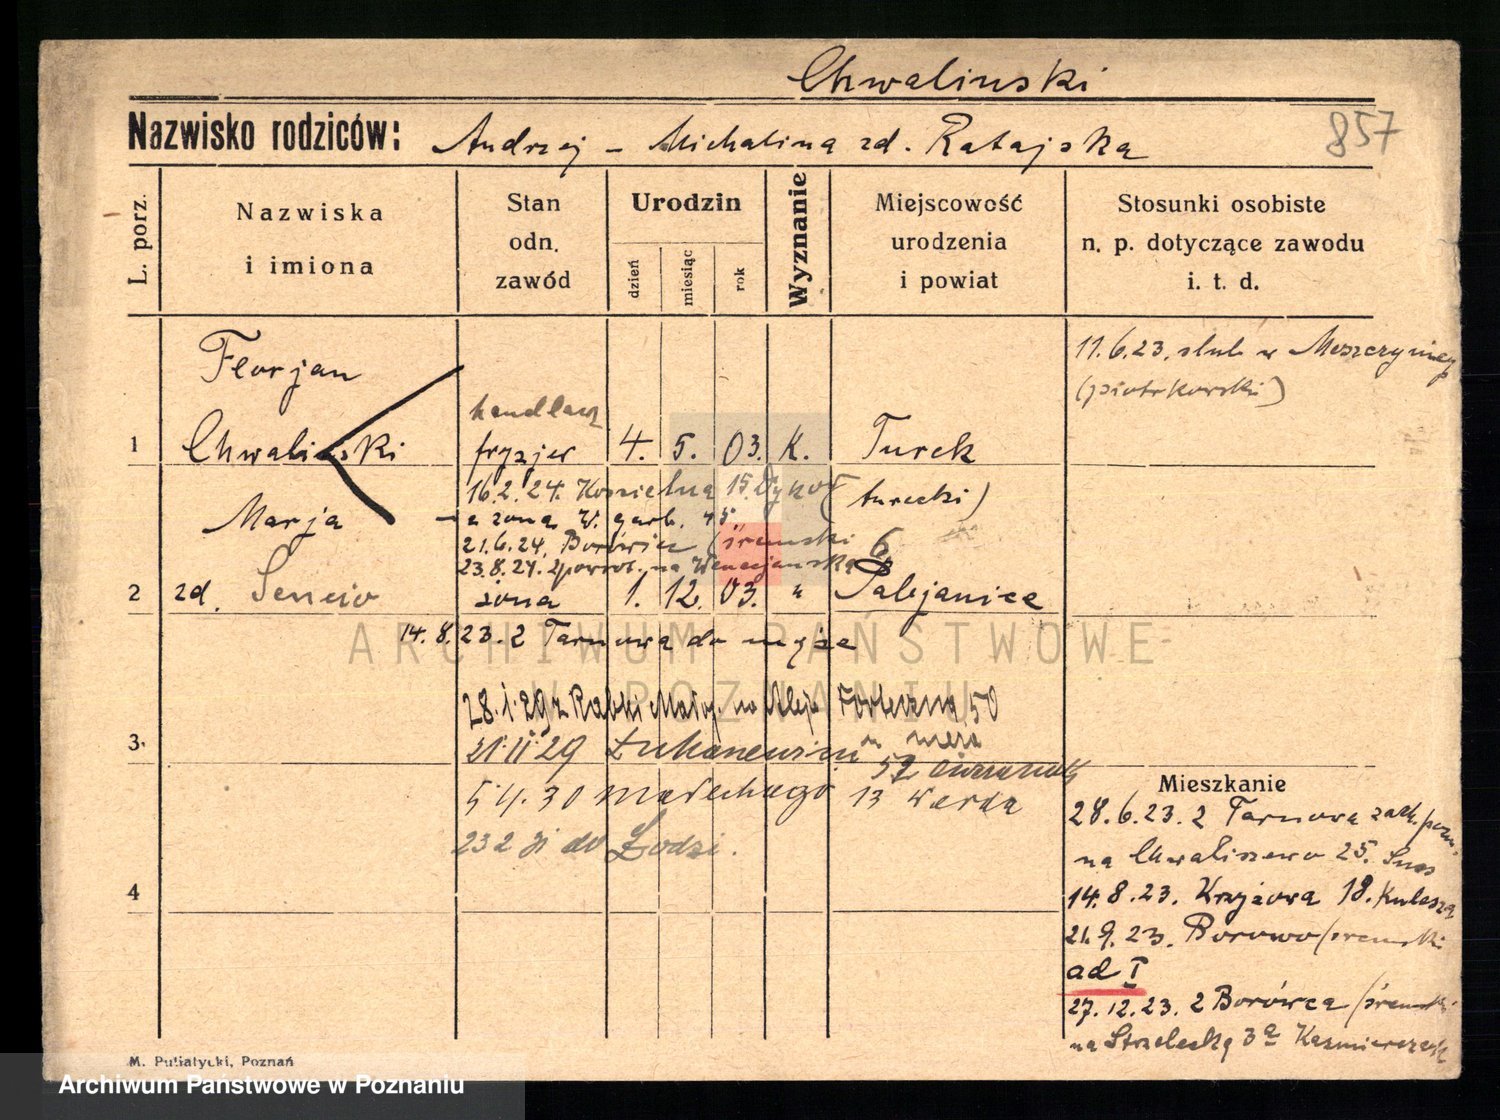 Chwalinski
Nazwisko rodziców: Andrzej – Michalina zd. Ratajska
857
L. porz.
Nazwiska i imiona
Stan odn. zawód
Urodzin
dzień
miesiąc
rok
Wyznanie
Miejscowość urodzenia i powiat
Stosunki osobiste n. p. dotyczące zawodu i. t. d.
Florjan
11.6.23. slub w
(piotrkowski)
handlarz
1 Chwalinski fryzjer 4. 5. 03. K. Turek
16.2.24. Kozielna 15.
turecki)
Marja
a zona W. garb. 45
21.6.24. Borówiec (śremski
6
23.8.24. 2 powrot. na
2 zd. zona 1. 12. 03. " Pabjanice
14.8.23. 2 Tarnowa do męża
28.1.29 z Rabki na Aleje Forteczna 50
3.
21.11.29
5 4. 30 13 Werda
232 31 do Łodzi.
4
Mieszkanie
28.6.23. 2 Tarnowa zach. pozn.
na Chwaliszewo 25.
14.8.23. Krzyżowa 18. Kulesza
21.9.23. Borowo (sremski
ad I
27.12.23. 2 Borówca (śremski
na Strzelecką 3a Kazmierczak
M. Putiatycki, Poznań
ARCHIWUM PAŃSTWOWE
W POZNANIU
Archiwum Państwowe w Poznaniu